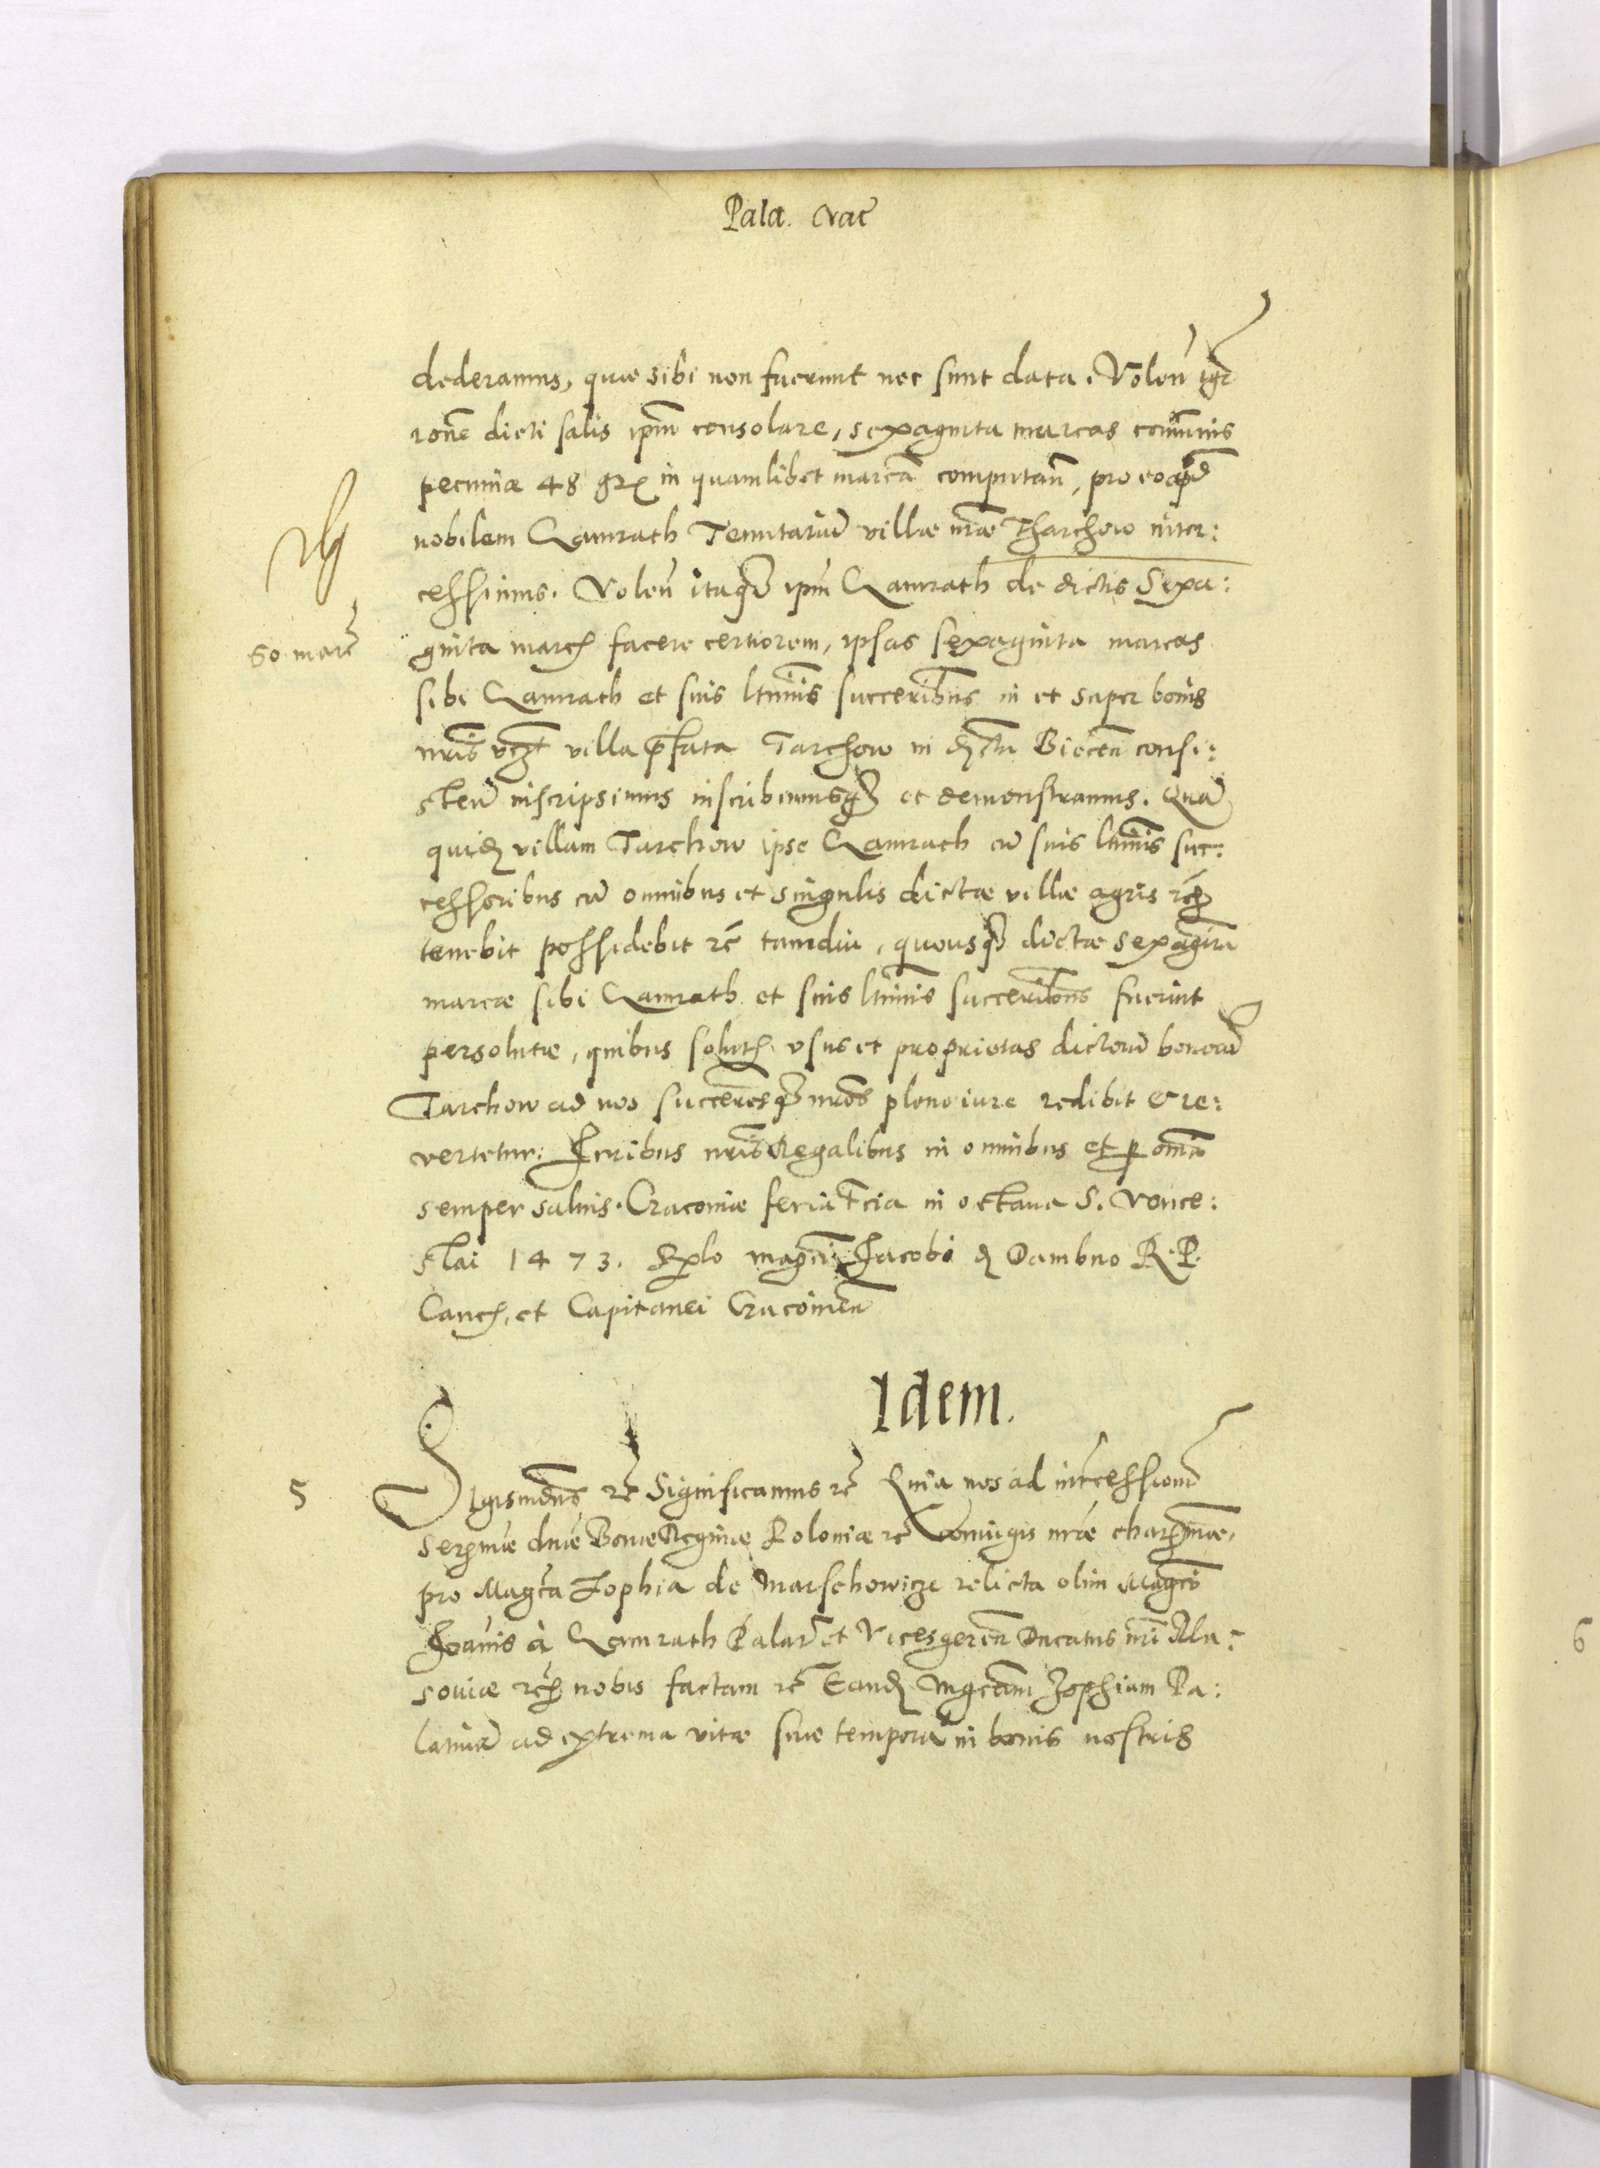 Pala. vac̃
dederamus, quæ sibi non fuerunt nec sunt data. Voleñ igr̃
rone dicti salis ipm̃ consolare, sexaginta marcas com̃unis
pecuniæ 48 gr̃ in quamlibet marcã computañ, pro eo apd̃
nobilem Qamrath Tenutariũ villæ nr̃æ Tharchow inter:
cessimus. Voleñ itaq3 ipm̃ Qamrath de dictis Sexa:
60 marc̃
ginta marc̃ facere certiorem, ipsas sexaginta marcas
sibi Qamrath et suis ltimis succeribus in et super bonis
nr̃is vczt villa p̃fata Tarchow in dictu Biecen̄ consi:
steñ inscripsimus inscribimusq3 et demonstramus. Quã
quid̃ villam Tarchow ipse Qamrath cũ suis ltimis suc:
cessoribus cũ omnibus et singulis dictæ villæ agris rc̃
tenebit possidebit rc̃ tamdiu, quousq3 dictæ sexaginta
marcæ sibi Qamrath et suis ltimis succeribus fuerint
persolutæ, quibus solut̃ usus et proprietas dictorũ bonorũ
Tarchow ad nos succeresq3 nr̃os pleno iure redibit & re:
vertetur: Iuribus nr̃is Regalibus in omnibus et p om̃ia
semper saluis. Cracoviæ feria tcia in octava S. Vence:
slai 1473. Rplo magci Jacobi d̃ Dambno R. P.
Canc̃, et Capitanei Cracovien̄
Idem.
5
Sigismdus rc̃ Significamus rc̃ Quia nos ad intcessionẽ
serm̃æ dnæ Bonæ Reginæ Poloniæ rc̃ Coniugis nr̃æ charm̃æ,
pro Magca Zophia de Marschowicze relicta olim Magci
Joañis à Qamrath Palat̃ et Vicesgeren̄ Ducatus nr̃i Ma:
soviæ rc̃ nobis factam rc̃ Eand̃ Mgcam Zophiam Pa:
latinã ad extrema vitæ suæ tempora in bonis nostris
6